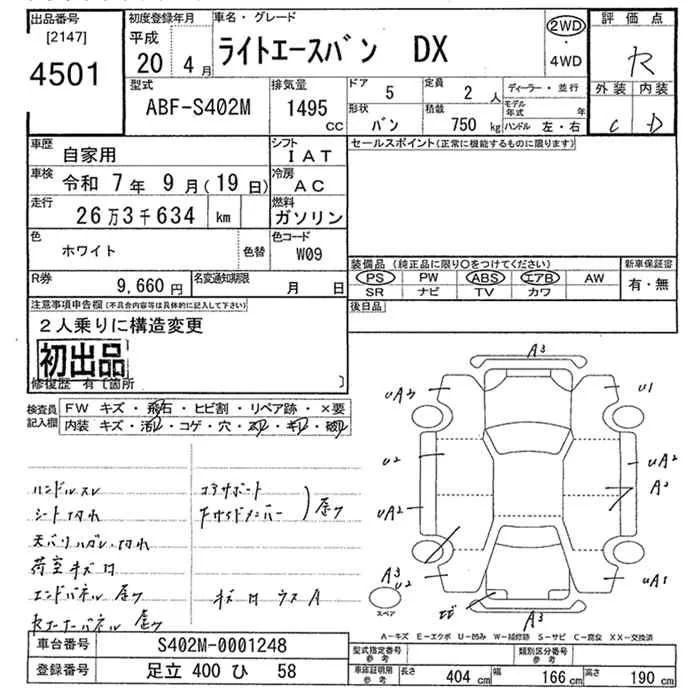 出品番号 初度登録年月 車名・グレード 評価点
[2147] 平成 ライトエースバン DX 2WD
4501 20年 4月 ・ R
4WD
型式 排気量 ドア 5 定員 2人 ディーラー・並行 外装 内装
ABF-S402M 1495cc 形状 バン 積載 750kg モデル年式 年 C D
ハンドル 左・右
車歴 自家用 シフト IAT セールスポイント(正常に機能するものに限ります)
車検 令和 7年 9月(19日) 冷房 AC
走行 26万3千634 km 燃料 ガソリン
色 ホワイト 色替 色コード W09
装備品(純正品に限り○をつけてください) 新車保証書
R券 9,660円 名変通知期限 月 日 PS PW ABS エアB AW 有・無
SR ナビ TV カワ
注意事項申告欄(不具合内容等は具体的に記入して下さい) 後日品
2人乗りに構造変更
初出品
修復歴 有〔箇所 〕
検査員記入欄 FW キズ・飛石・ヒビ割・リペア跡・×要
内装 キズ・汚れ・コゲ・穴・スレ・キレ・破れ
A3
UA3 U1
U2 UA2
A2
UA2
A3
U2 UA1
A3
スペア
ハンドルスレ コアサポート
シート切れ 下サイドメンバー 屋ク
天バリハガレ、切れ
荷室キズ凹
エンドパネル 屋ク キズ凹 ウスA
A-キズ E-エクボ U-凹み W-補修跡 S-サビ C-腐食 XX-交換済
車台番号 S402M-0001248 型式指定番号 参考 類別区分番号 参考
登録番号 足立 400 ひ 58 車庫証明用 参考 長さ 404cm 幅 166cm 高さ 190cm